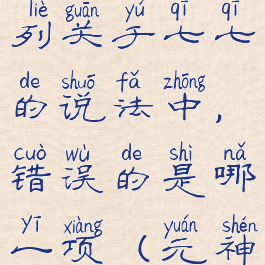 liè guān yú qī qī
列关于七七
de shuō fǎ zhōng
的说法中，
cuò wù de shì nǎ
错误的是哪
yī xiàng yuán shén
一项（元神